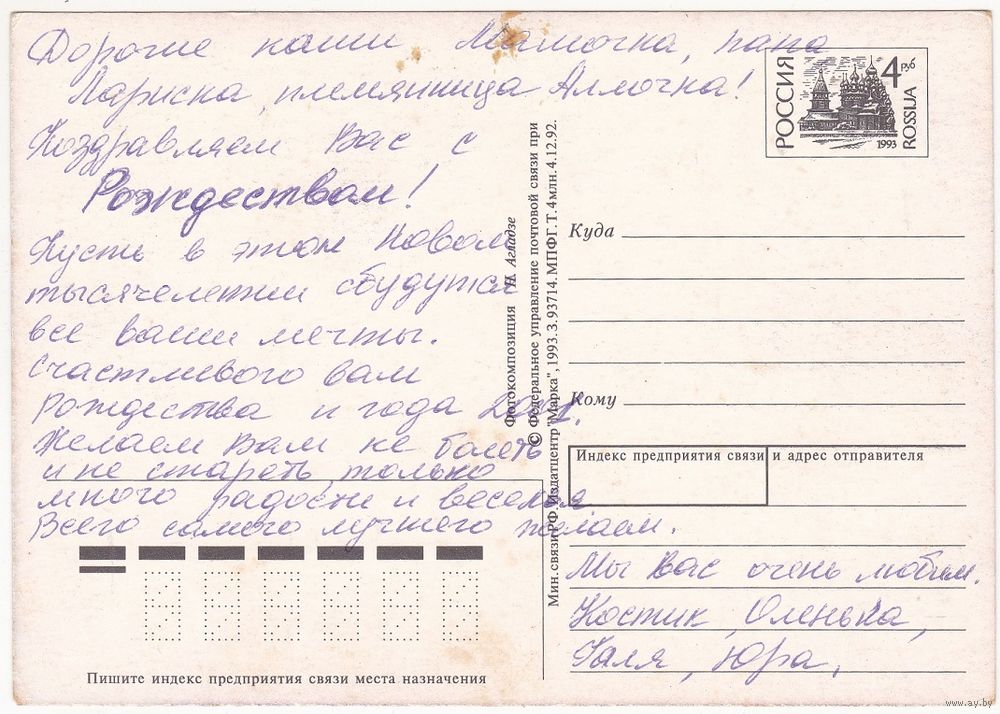 Дорогие наши Мамочка, папа
Лариска, племянница Аллочка!
Поздравляем Вас с
Рождеством!
Пусть в этом Новом
тысячелетии сбудутся
все ваши мечты.
Счастливого вам
Рождества и года 2001.
Желаем Вам не болеть
и не стареть, только
много радости и веселья
Всего самого лучшего желаем.
Пишите индекс предприятия связи места назначения
Фотокомпозиция Н. Агладзе
© Федеральное управление почтовой связи при
Мин. связи РФ. Издатцентр "Марка", 1993. З. 93714. МПФГ. Т. 4 млн. 4.12.92.
РОССИЯ
4 руб
ROSSIJA
1993
Куда
Кому
Индекс предприятия связи и адрес отправителя
Мы Вас очень любим.
Костик, Оленька,
Галя, Юра.
www.ay.by